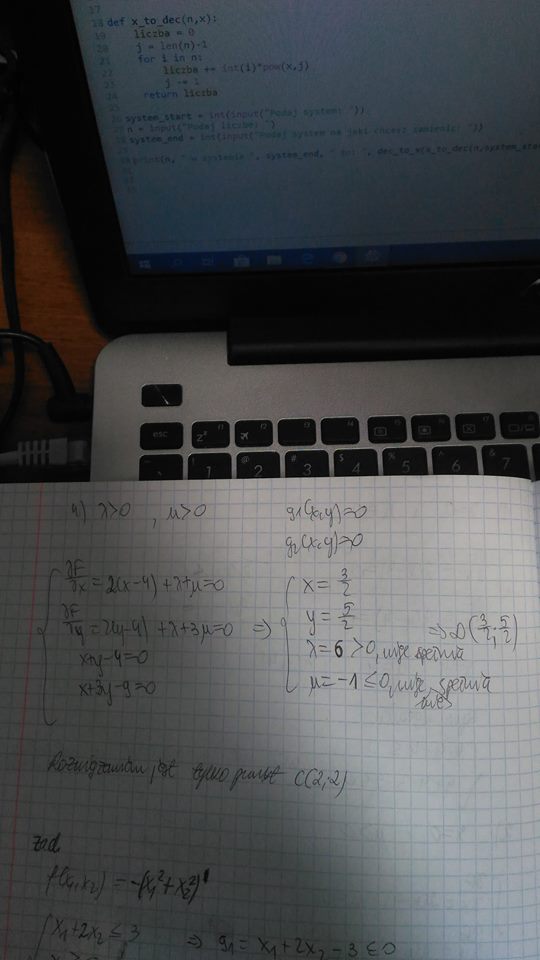 17
18 def x_to_dec(n,x):
19 liczba = 0
20 j = len(n)-1
21 for i in n:
22 liczba += int(i)*pow(x,j)
23 j -= 1
24 return liczba
system_start = int(input("Podaj system: "))
n = input("Podaj liczbe: ")
system_end = int(input("Podaj system na jaki chcesz zamienic: "))
print(n, " w systemie ", system_end, " to: ", dec_to_x(x_to_dec(n,system_star
esc
! 1 @ 2 # 3 $ 4 % 5 ^ 6 & 7
4) λ>0 , μ>0 g1(x,y)=0
g2(x,y)=0
∂F/∂x = 2(x-4) + λ+μ=0 x = 3/2
∂F/∂y = 2(y-4) + λ+3μ=0 => y = 5/2 => D(3/2, 5/2)
x+y-4=0 λ = 6 >0, więc spełnia
x+3y-9=0 μ = -1 ≤0, więc spełnia
Rozwiązaniem jest tylko punkt C(2,2)
zad.
f(x1,x2) = -(x1²+x2²)
x1+2x2 ≤ 3 => g1 = x1+2x2-3 ≤0